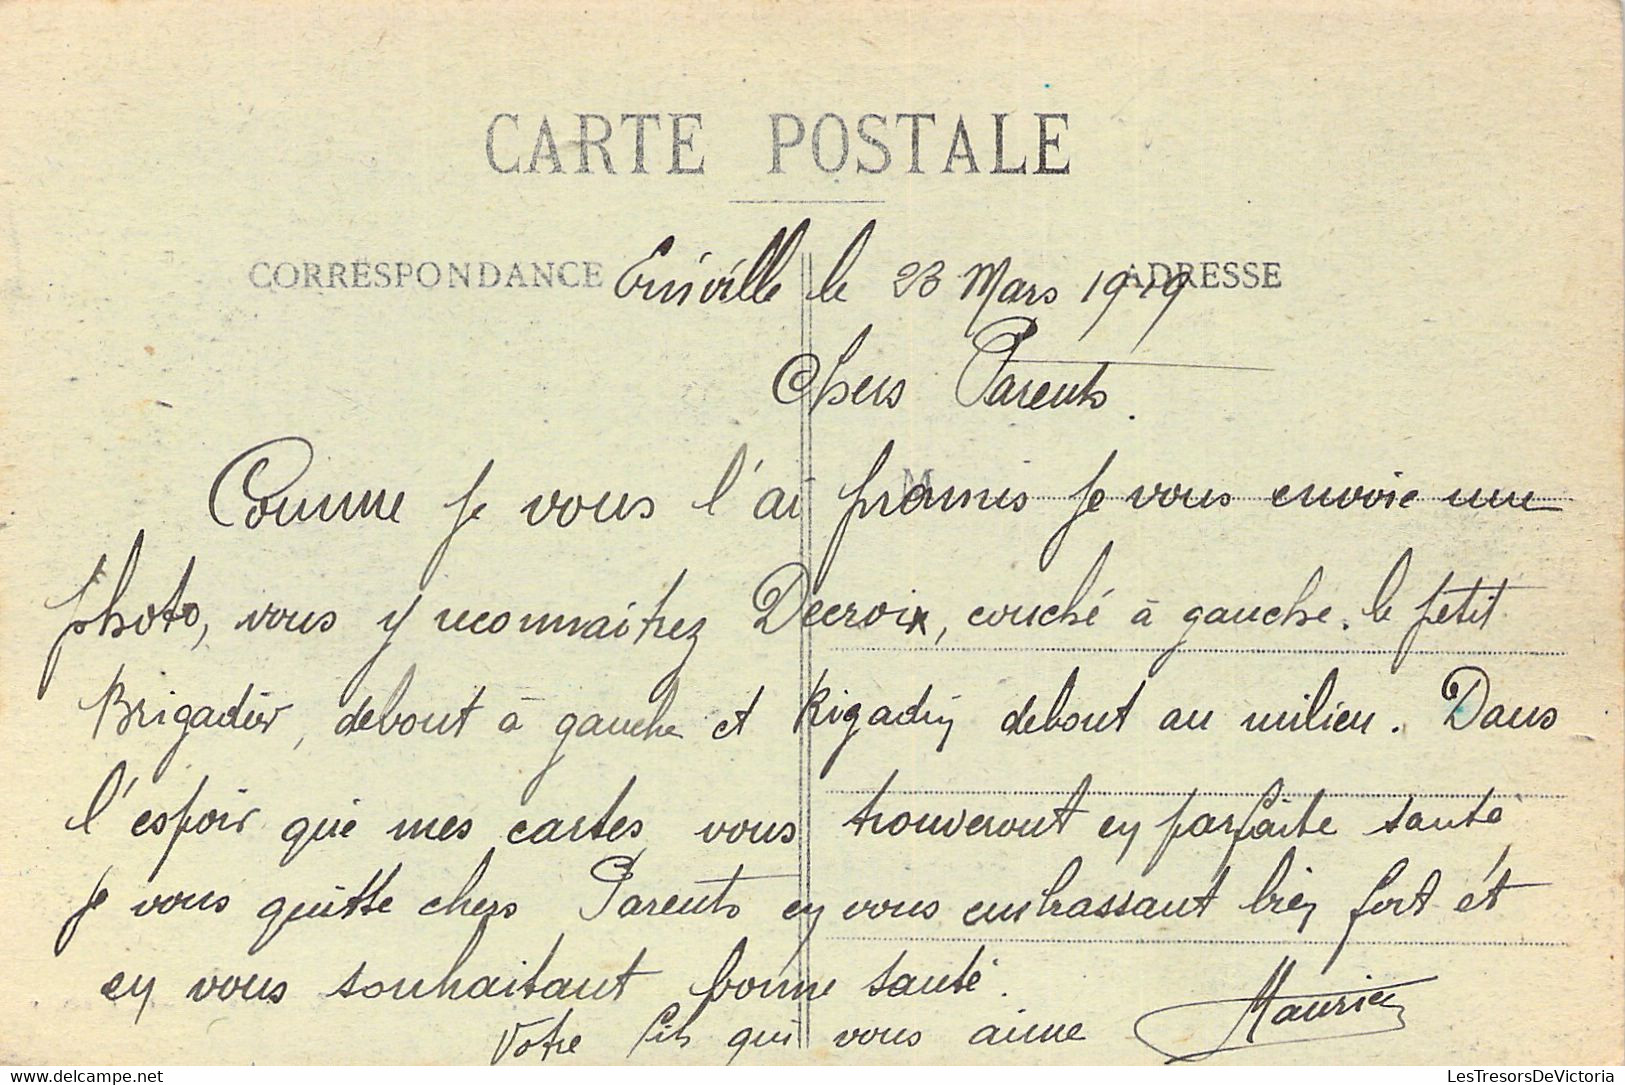 CARTE POSTALE
CORRESPONDANCE
ADRESSE
Einville le 23 Mars 1919
Chers Parents.
M
Comme je vous l'ai promis je vous envoie une
photo, vous y reconnaitrez Decroix, couché à gauche. le petit
Brigadier, debout à gauche et Rigadin debout au milieu. Dans
l'espoir que mes cartes vous trouveront en parfaite santé,
je vous quitte chers Parents en vous embrassant bien fort et
en vous souhaitant bonne santé.
Votre fils qui vous aime Maurice
delcampe.net
LesTresorsDeVictoria